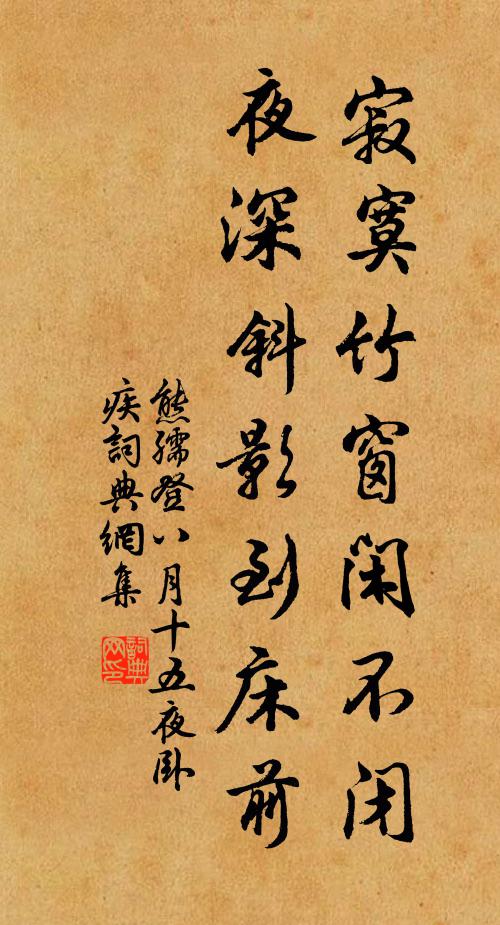 寂寞竹窗閑不閉
夜深斜影到床前
熊孺登八月十五夜卧
疾詞典網集
詞典
网印